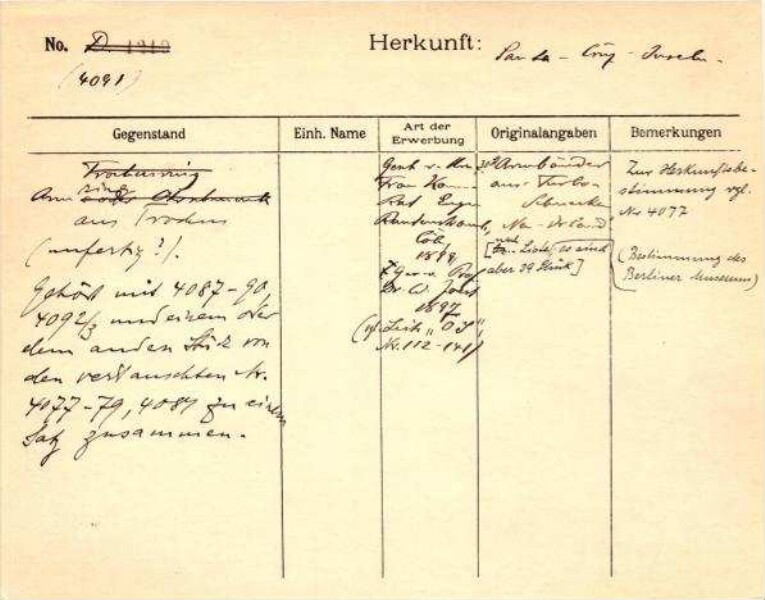 No. D. 1210
Herkunft: Santa - Cruz - Inseln.
(4091)
Gegenstand
Einh. Name
Art der Erwerbung
Originalangaben
Bemerkungen
Arm ring
aus Trochus
(unfertig?).
Gehört mit 4087-90,
4092/3 und einem oder
dem anderen Stück von
den vertauschten Nr.
4077-79, 4084 zu einem
Satz zusammen.
Gesch. v.
Frau
Rat Eugen
Rautenstrauch,
Cöln
1898
Prof.
Dr. W. Joest
1897
(vgl. Liste "OI",
Nr. 112-141)
Armbänder
aus Turbo-
Schnecke
[nach Liste, es sind
aber 39 Stück]
Zur Herkunftsbe-
stimmung vgl.
Nr 4077
(Bestimmung des
Berliner Museums)